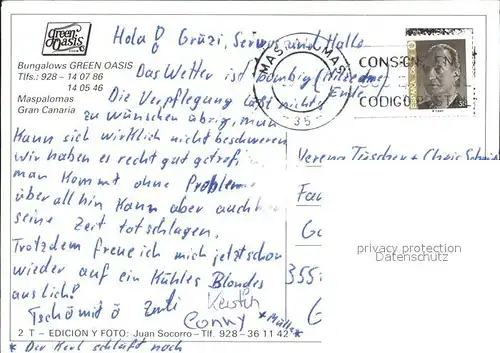 green
Oasis
Bungalows GREEN OASIS
Tlfs.: 928 - 14 07 86
14 05 46
Maspalomas
Gran Canaria
Hola! Grüzi, Servus und Hallo
Das Wetter ist bombig
Ende
Die Verpflegung läßt nichts
zu wünschen übrig, man
kann sich wirklich nicht beschweren
wir haben es recht gut getroffen
man kommt ohne Probleme
überall hin kann aber auch
seine Zeit totschlagen.
Trotzdem freue ich mich jetzt schon
wieder auf ein Kühles Blondes
aus lich!
Tschö mit ö
Kerstin
Conny
*Mülle*
MAS
MAS
- 35 -
CONSIGNE EN
CODIGO
Verena Tüscher + Chris Schmid
Fau
355
privacy protection
Datenschutz
2 T - EDICION Y FOTO: Juan Socorro - Tlf. 928 - 36 11 42
* Der Kerl schläft noch